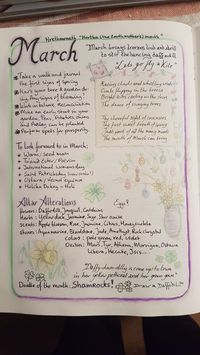 Northumnats "Hretha Line (earth mother's month"
March
"March brings breezes loud and shrill
to stir the dancing daffodil
"Let's go fly a Kite"
Take a walk and journal
the first signs of Spring
How's your tree & garden do-
ing? Any signs of blooming
Work on balance. Reconciliation
Make an early start in your
garden. Peas, Radish, Onions
and Parsley can be planted
Perform spells for prosperity.
Racing clouds and whistling winds
Curls flapping in the breeze
Bright kites sailing on the
The dance of swaying trees
The cheerful sight of crocuses
The first sweet breath of lawns
Just part of all the many moods
the month of March can bring
To look forward to in March:
Worm / Seed moon
International Women's day
Saint Patricks day
Ostara / Vernal equinox
Holika Dahan - Holi
Altar Alterations
Eggs?
Flowers: Daffodils, Jonquil,
Herbs: Yellow dock,
Scents: Apple blossom, Rose, Jasmine, Citrus, Honeysuckle
Stones: Aquamarine, Bloodstone, Jade, Amethyst, Rock Chrystal
colours: pale green, red, violet
Deities: Mars, Tyr, Athena, Morrigan, Ostara
Libera, Hecate, Isis...
"Daffy-down-dilly is come up to town
in her yellow petticoat and her green gown"
Doodle of the month: Shamrocks!
Draw a Daffodil